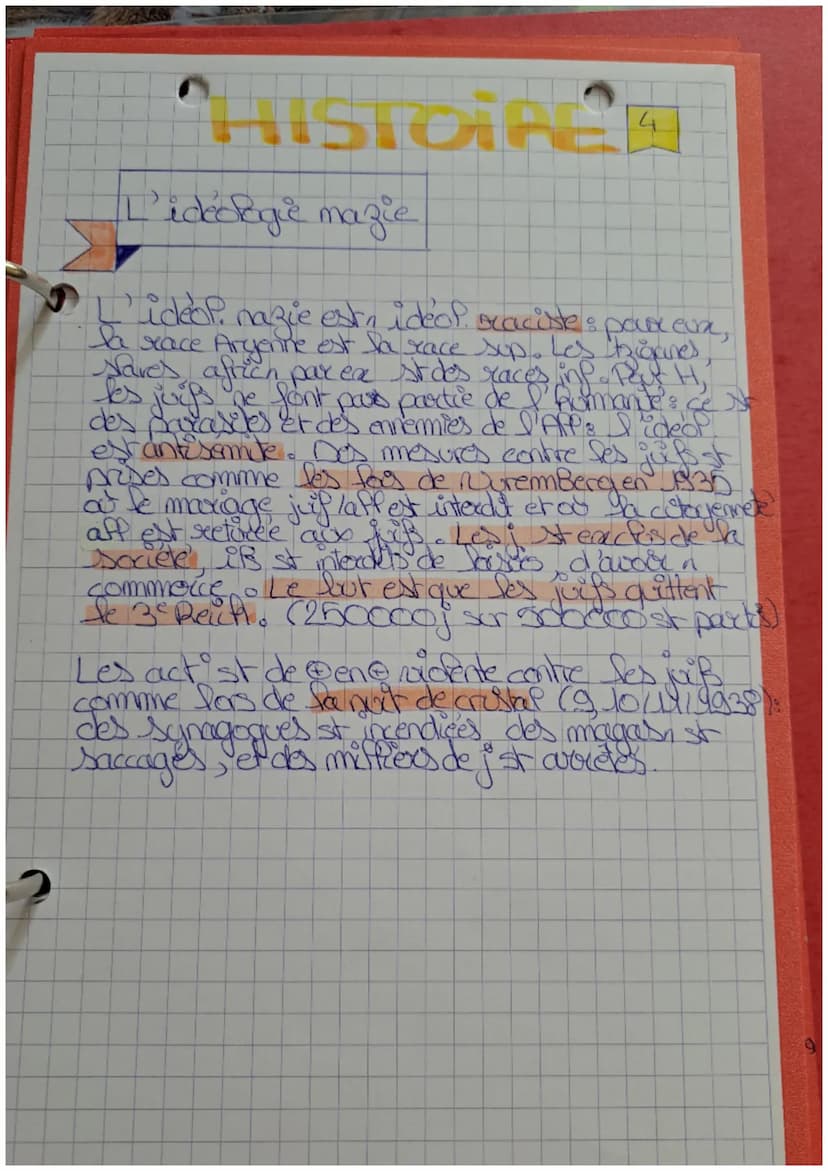 HISTOIRE 4
L'idéologie nazie
L'idéol. nazie est 1 idéol. raciste : pour eux,
la race Aryenne est la race sup. Les tziganes,
slaves, africn par ex st des races inf. Pour H,
les juifs ne font pas partie de l'humanité : ce st
des parasites et des ennemies de l'All : l'idéol
est antisémite. Des mesures contre les juifs st
prises comme les lois de Nuremberg en 1935
où le mariage juif/all est interdit et où la citoyenneté
all est retirée aux juifs. Les j st exclus de la
société, ils st interdits de loisirs, d'avoir 1
commerce. Le but est que les juifs quittent
le 3e Reich. (250000 j sur 500000 st partis)
Les act° st de ⊕ en ⊕ violente contre les juifs
comme lors de la nuit de cristal (9, 10/11/1938) :
des synagogues st incendiées, des magasn st
saccagés, et des milliers de j st arrêtés.